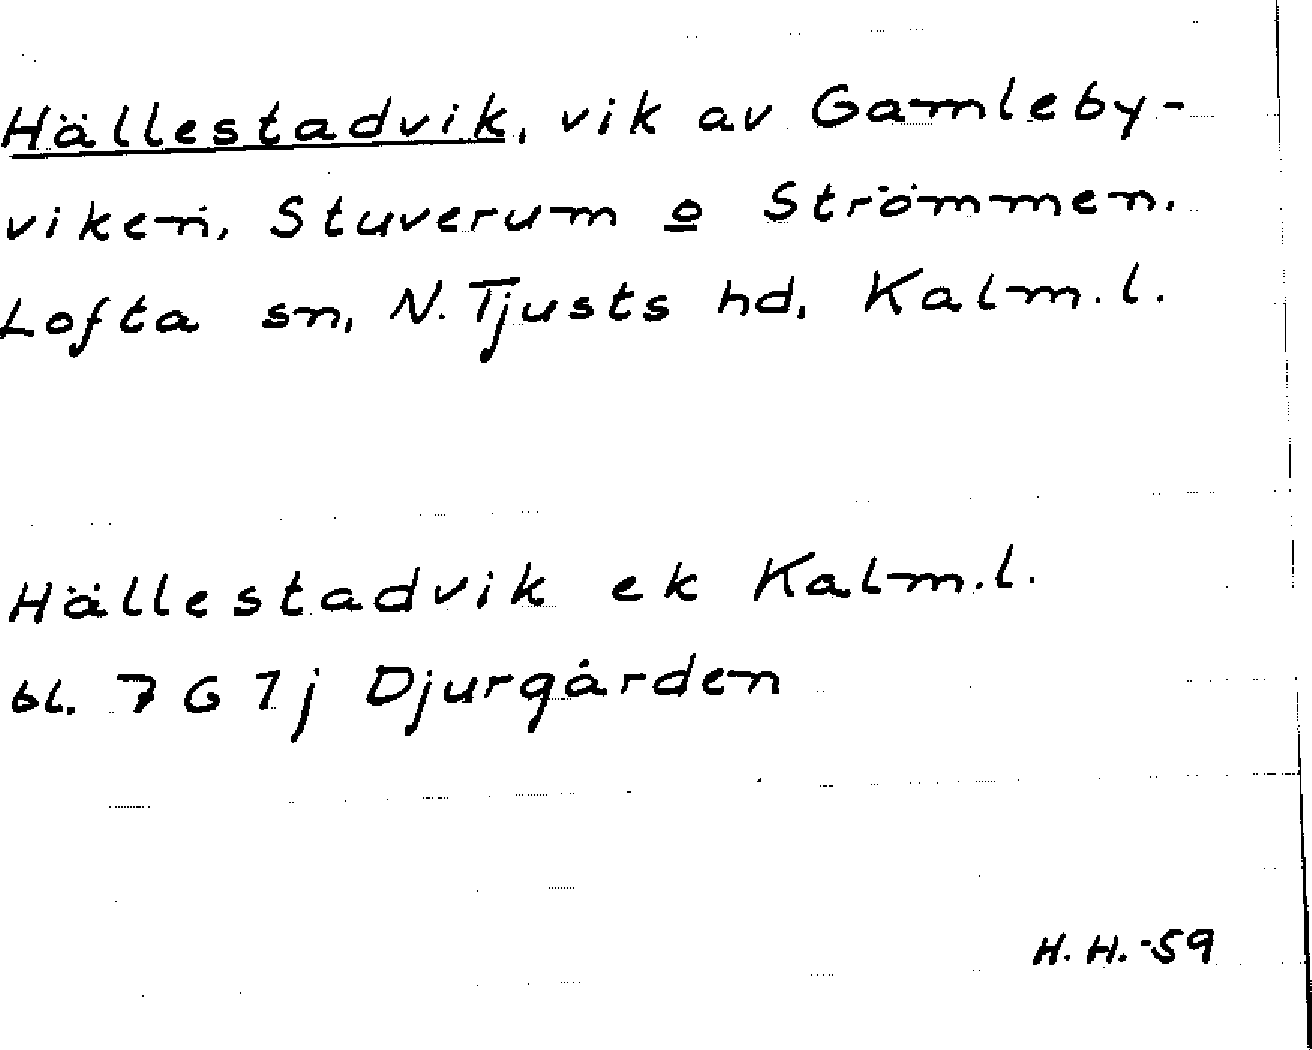 Hällestadvik, vik av Gamleby-
viken, Stuverum o Strömmen.
Lofta sn, N. Tjusts hd, Kalm. l.
Hällestadvik ek Kalm. l.
bl. 7 G 7j Djurgården
H. H. -59